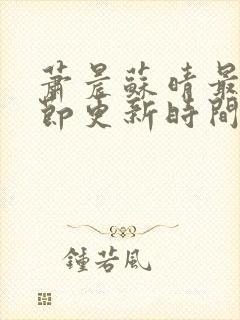 蕭晨蘇晴最
節更新時間
鍾若風